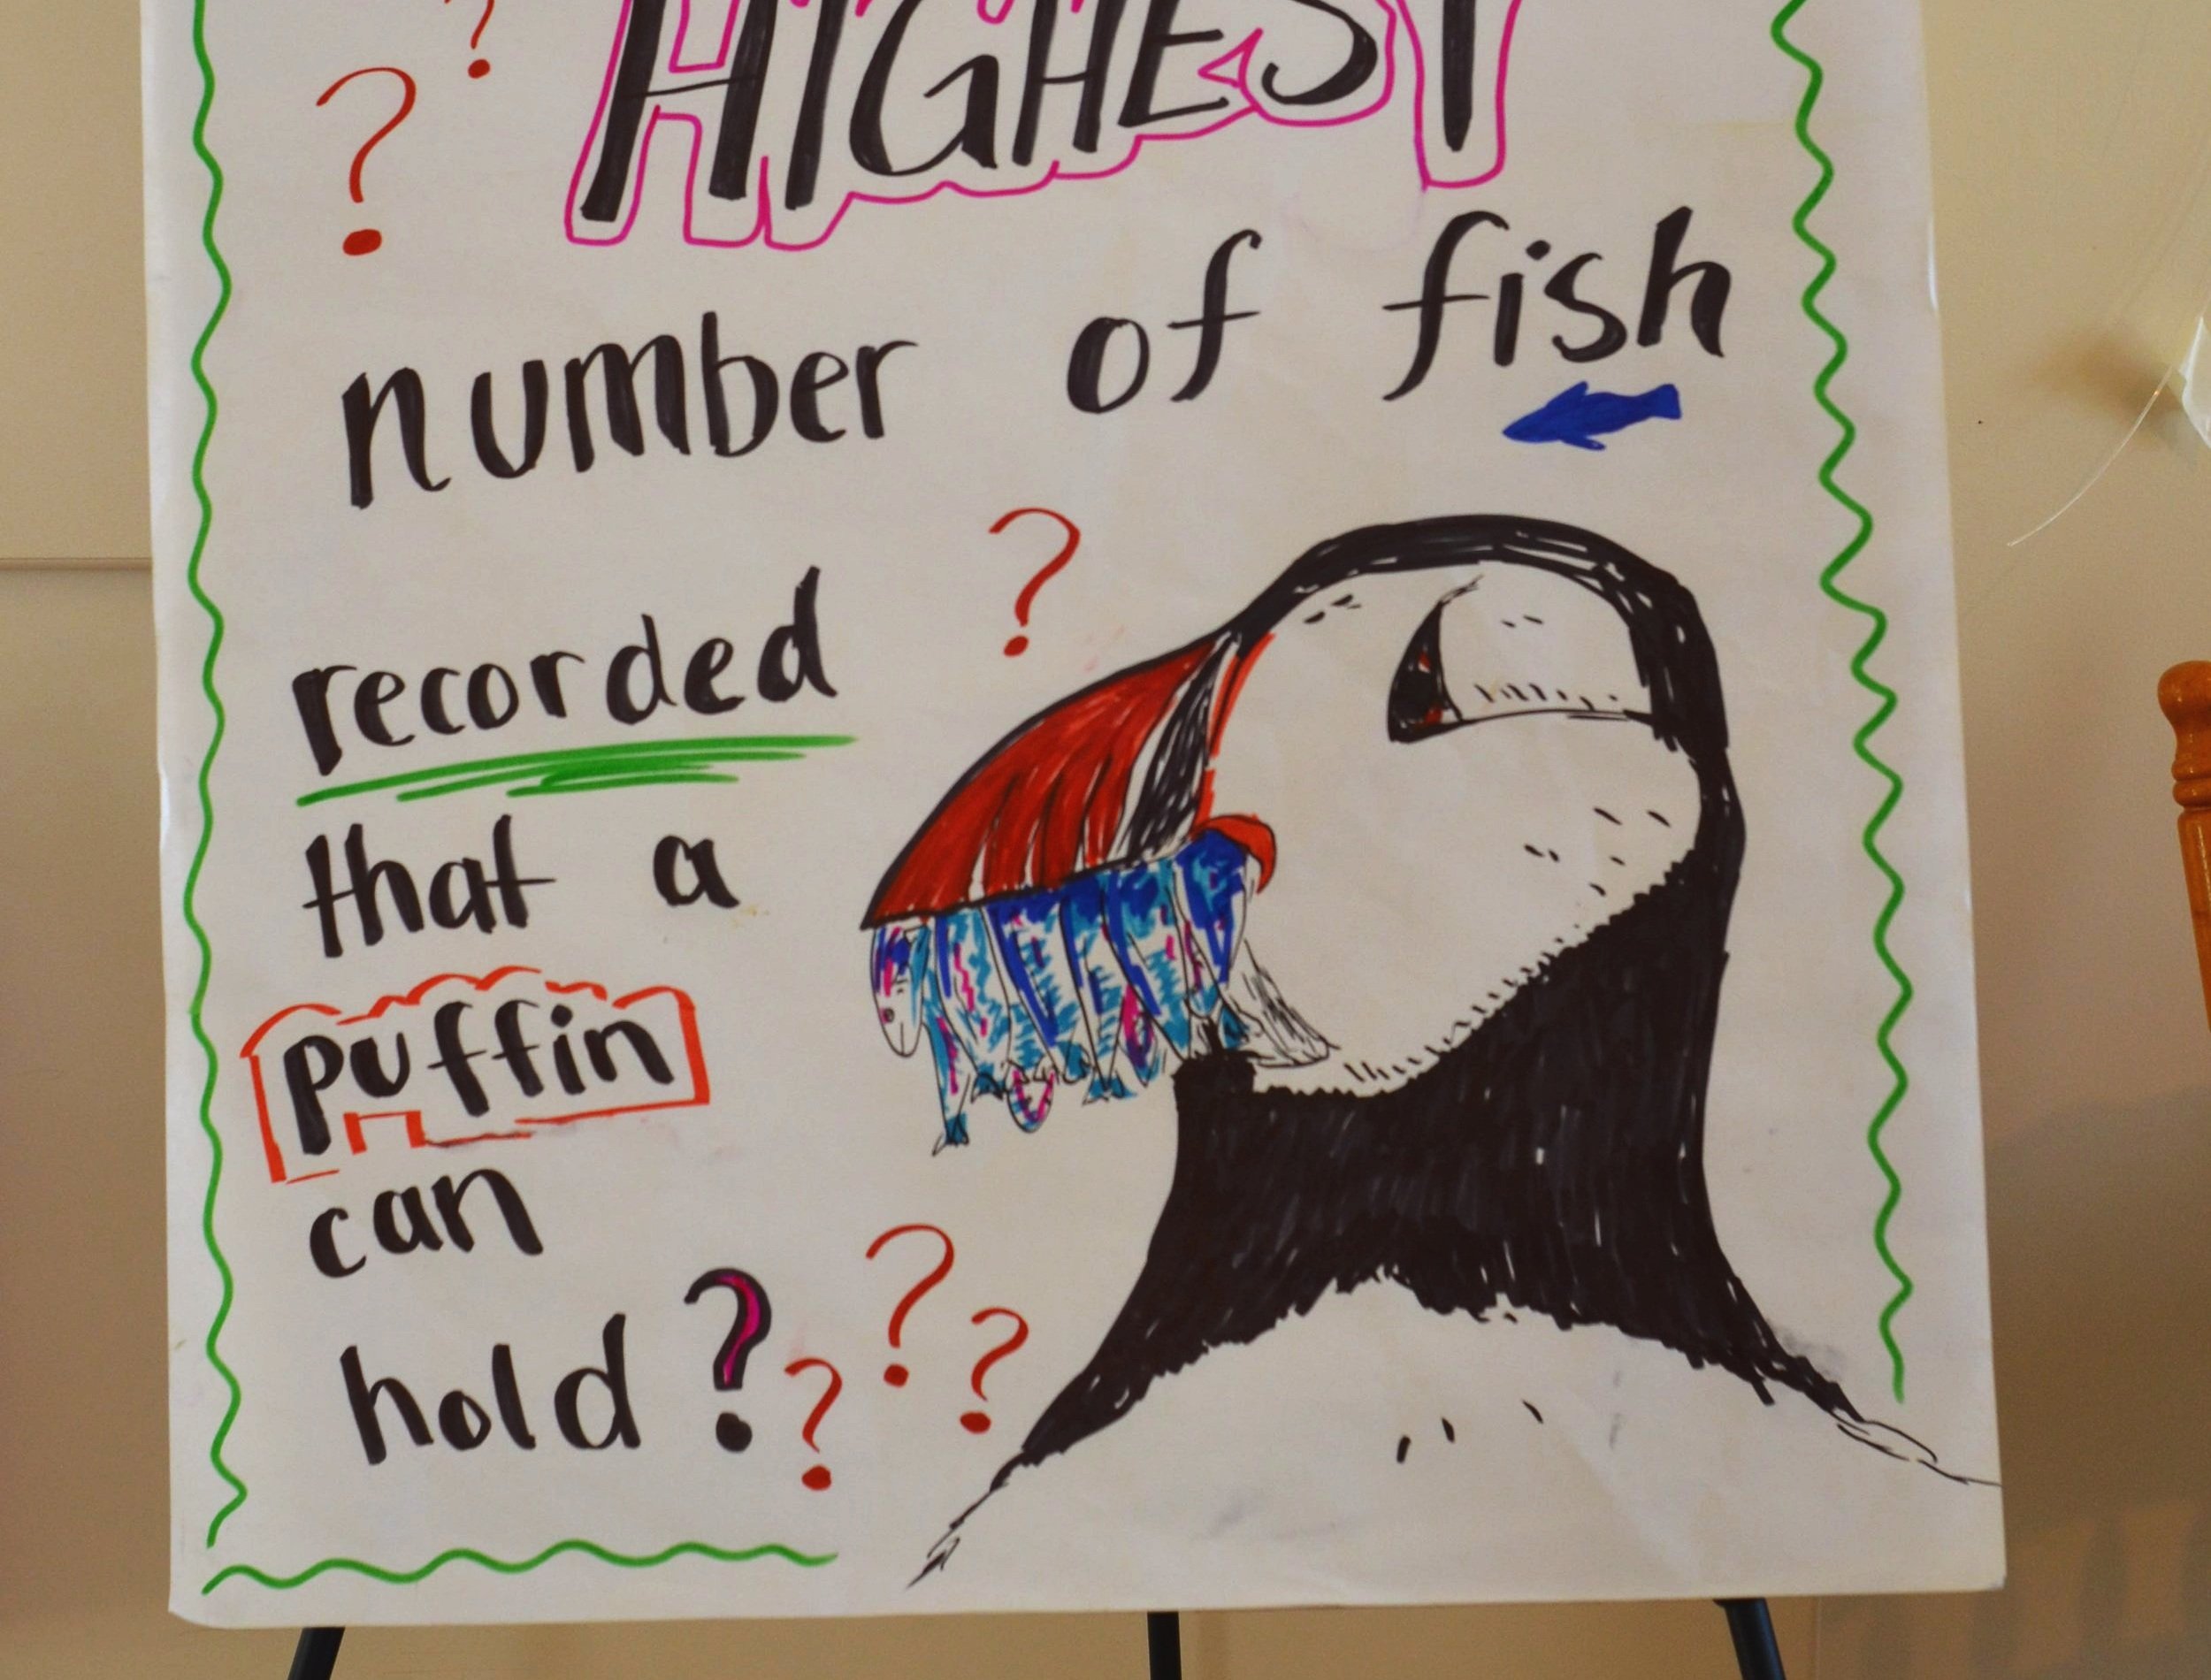 HIGHEST
number of fish
recorded
that a
puffin
can
hold?